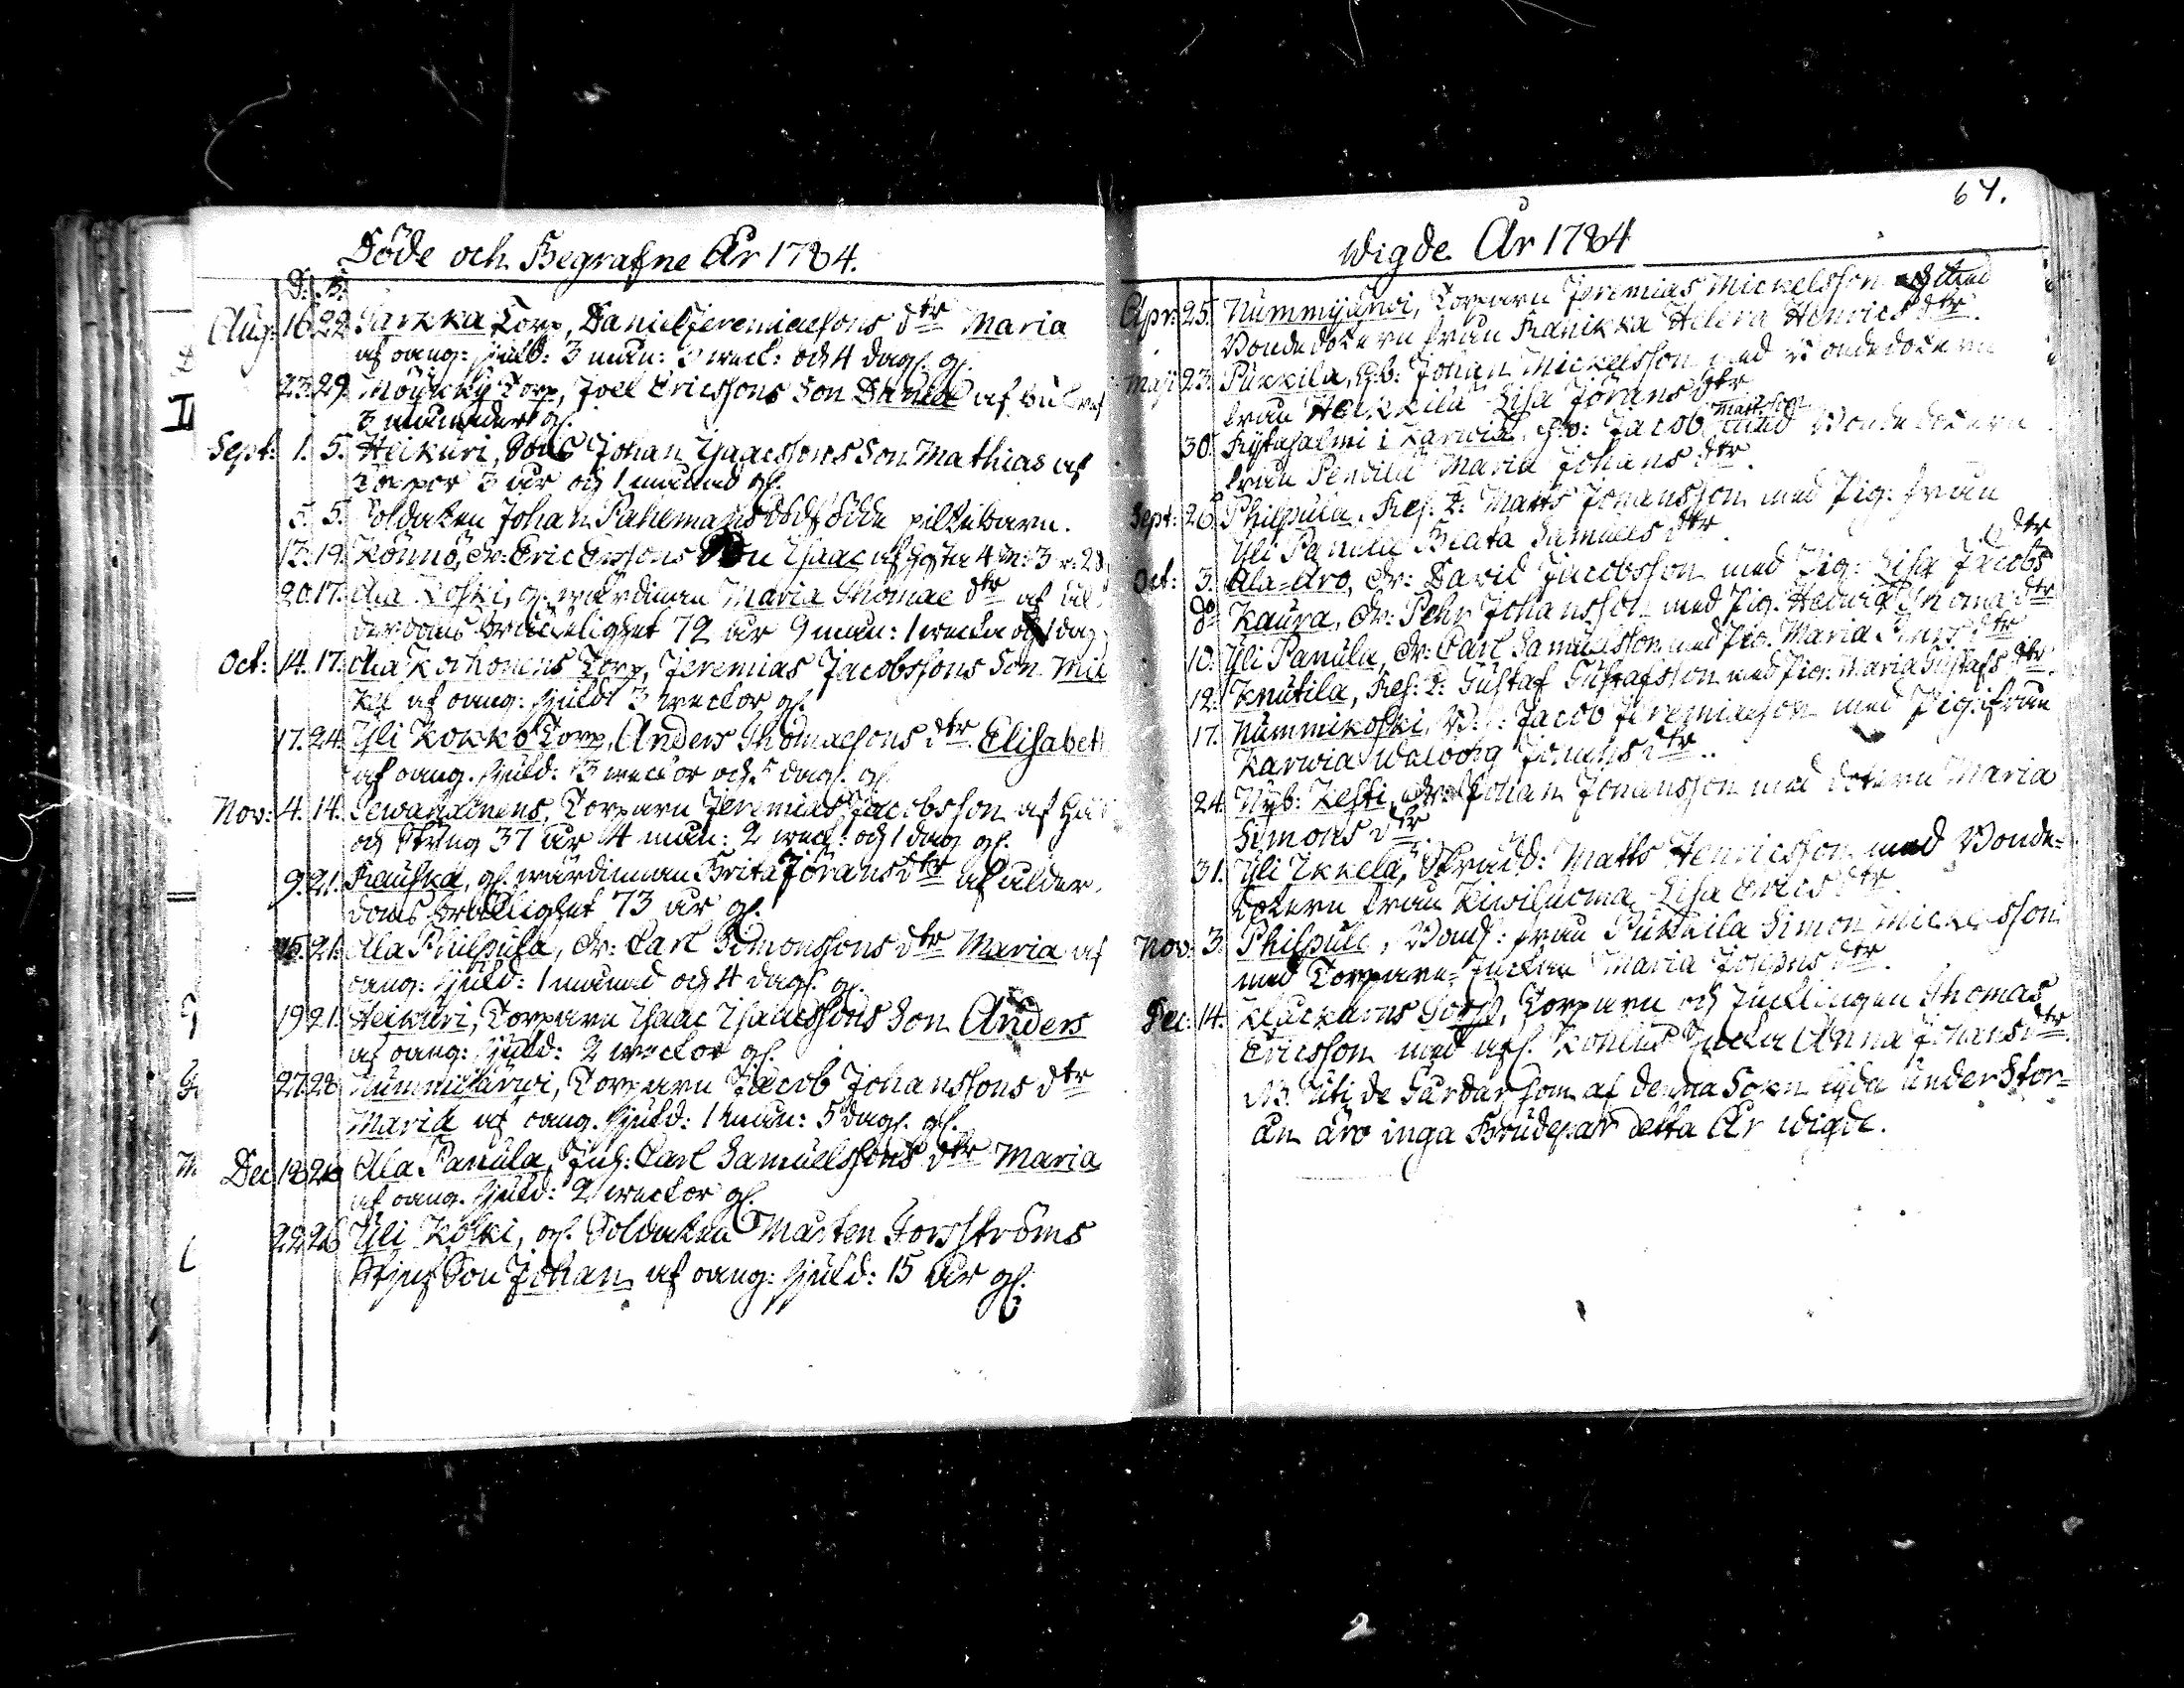 Döde och Begrafne År 1784.
D. B.
Aug: 16. 22. Sarkka Torp, Daniel Jeremiaesons dtr Maria
af oang: sjukd: 3 mån: 3 weck: och 4 dagr gl.
23. 29. Möykky Torp, Joel Ericssons Son Daniel af
3 månader gl.
Sept: 1. 5. Heikuri, Johan Isaacssons Son Mathias af
Koppor 3 år och 1 månad gl.
5. 5. Soldaten Johan Pakemans dödfödde piltebarn.
13. 19. Könnö, dr: Eric Ericssons Son Isaac af Hosta 4 m: 3 w: 2 d
20. 17. Ala Koski, gl. wärdinnan Maria Thomae dtr af ål-
derdoms bräckelighet 72 år 9 mån: 1 wecka och 1 dag
Oct: 14. 17. Ala Kohonens Torp, Jeremias Jacobssons Son Mic
kel af oang: sjukd 3 weckor gl.
17. 24. Yli Kokko Torp, Anders Thomaesons dtr Elisabet
af oang. sjukd: 3 weckor och 5 dagr gl.
Nov: 4. 14. Torparen Jeremias Jacobsson af Håll
och Styng 37 år 4 mån: 2 weck: och 1 dag gl.
9. 21. Rauska, gl. wärdinnan Brita Jörans dtr af ålder-
doms bräcklighet 73 år gl.
15. 21. Ala Philpula, dr: Carl Simonssons dtr Maria af
oang: sjukd: 1 månad och 4 dagr gl.
19. 21. Heikuri, Torparen Isaac Isaacssons Son Anders
af oang: sjukd: 2 weckor gl.
27. 28. Nummijärwi, Torparen Jacob Johanssons dtr
Maria af oang. sjukd: 1 mån: 5 dagr. gl.
Dec 18. 26. Ala Panula, Inh: Carl Samuelssons dtr Maria
af oang. sjukd: 2 weckor gl.
22. 26. Yli Koski, gl. Soldaten Mårten Forsströms
Stjuf Son Johan af oang: sjukd: 15 år gl.
64.
Wigde År 1784
Apr: 25. Nummijärwi, Torparen Jeremias Mickelsson med
Bondedotern från Kranikka Helena Henrics dtr.
Maji 23. Pukkila, Johan Mickelsson med Bondedotern
från Heikkilä Lisa Jörans dtr
30. Kytösalmi i Karwia, Jacob Mattsson med Bondedotern
från Pentilä Maria Johans dtr.
Sept: 26. Philpula, Res. K: Matts Johansson med Pig: från
Yli Panula Beata Samuels dtr.
Oct: 3. Ala-Aro, dr: David Jacobsson med Pig: Lisa Jacobs dtr
do Kaura, dr: Pehr Johansson med Pig. Hedwig Thomae dtr
10. Yli Panula, dr: Carl Samuelsson med Pig. Maria dtr
12. Knutila, Res: K: Gustaf Gustafsson med Pig: Maria Gustafs dtr.
17. Nummikoski, Jacob Jeremiaeson med Pig: från
Karwia Walborg dtr..
24. Nyb: Kesti, dr: Johan Johansson med dotern Maria
Simons dtr
31. Yli Ikkelä, Skrädd: Matts Henricsson med Bonde-
dotern från Kiwiluoma Lisa Erics dtr.
Nov: 3. Philpula, Bonds: från Pukkila Simon Mickelsson
med Torpare Enckan Maria Johans dtr.
Dec: 14. Kluckarns Torp, Torparen och Encklingen Thomas
Ericsson med Enckan Anna Johans dtr
NB. Uti de Gårdar som af denna Sokn lyda under Stor-
ån äro inga Brudepar detta År wigde.